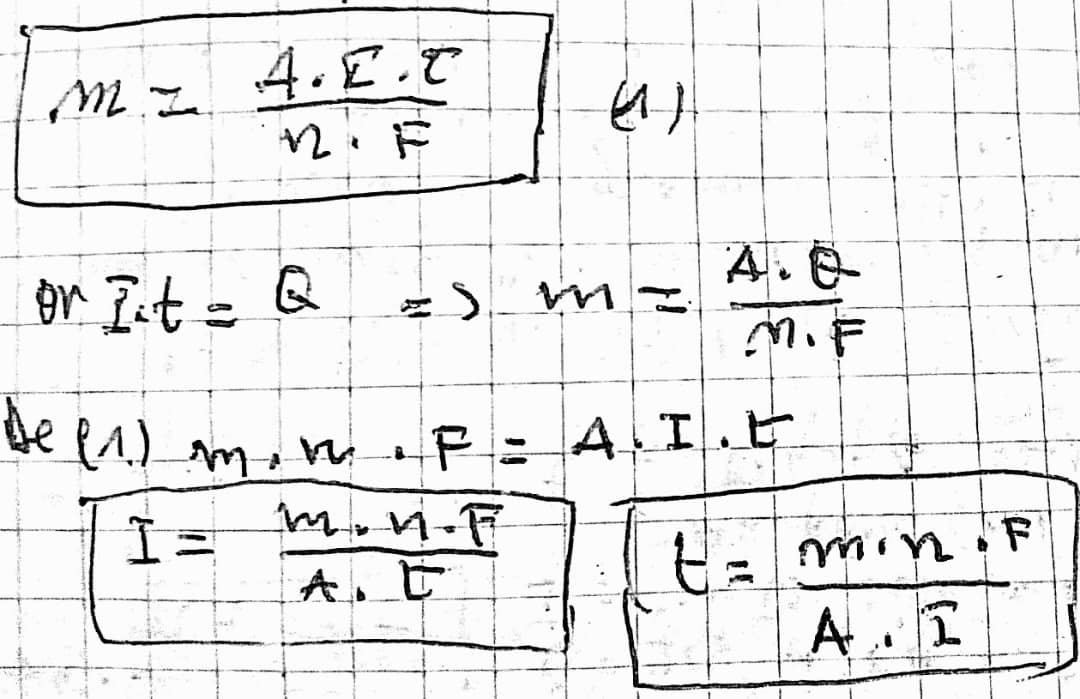 m = A.I.t / n.F (1)
or I.t = Q => m = A.Q / n.F
De (1) m.n.F = A.I.t
I = m.n.F / A.t t = m.n.F / A.I